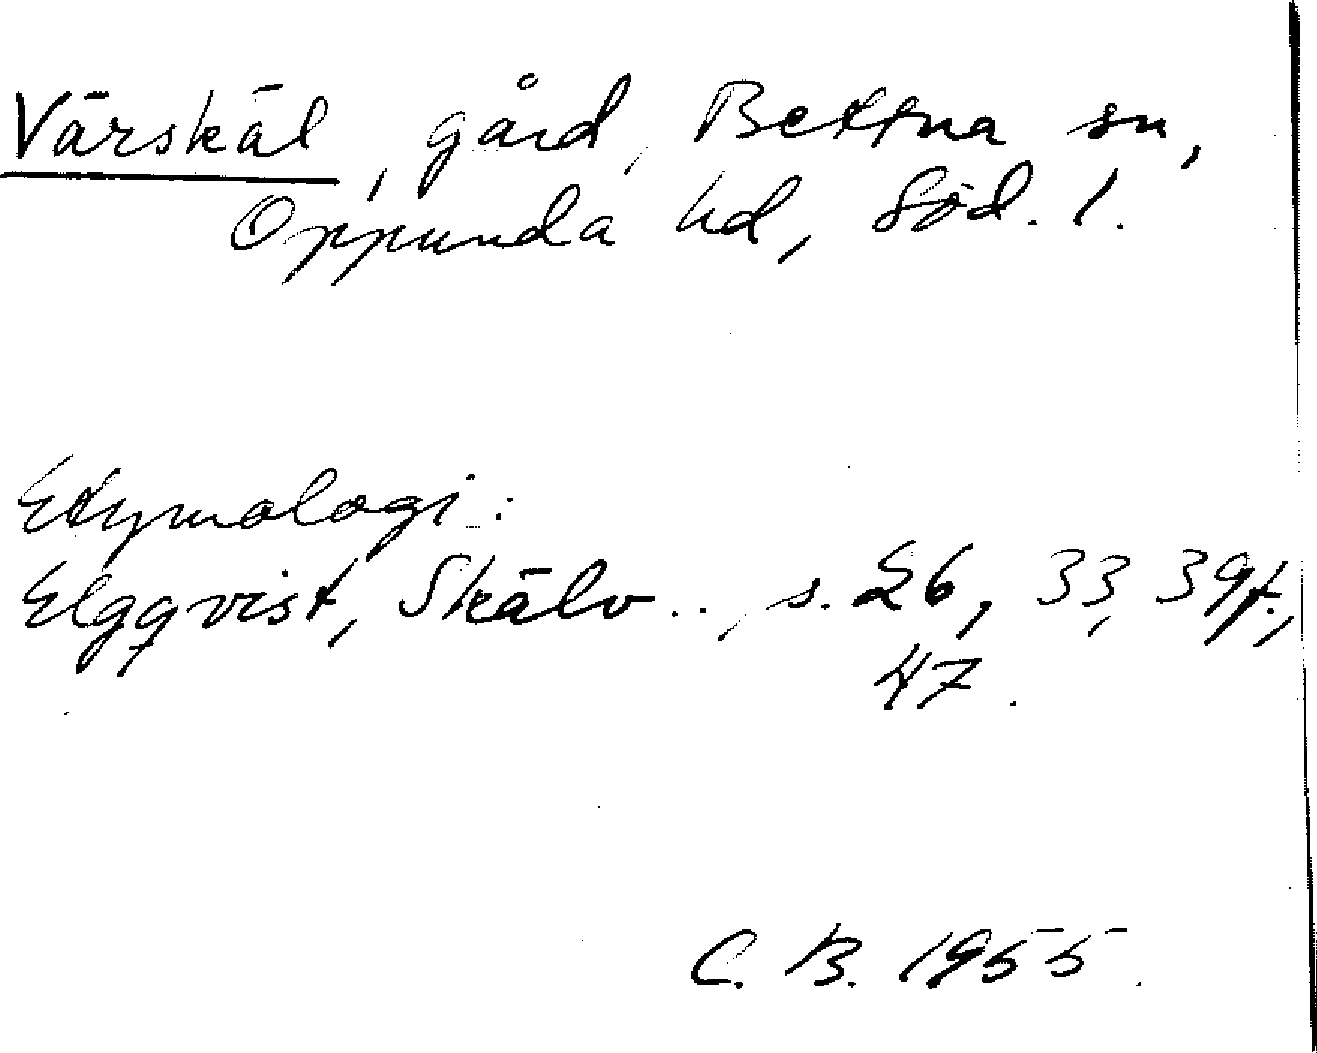 Värskäl, gård, Bettna sn,
Oppunda hd, Söd. l.
Etymologi:
Elgqvist, Skälv.., s. 26, 33, 39f.,
47.
C. B. 1955.